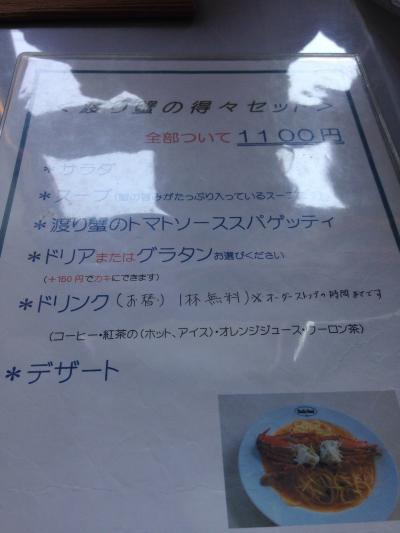 ＜渡り蟹の得々セット＞
全部ついて 1100円
＊サラダ
＊スープ(蟹の旨みがたっぷり入っているスープ
＊渡り蟹のトマトソーススパゲッティ
＊ドリアまたはグラタンお選びください
(＋150円でカキにできます)
＊ドリンク(お替り 1杯無料)※オーダーストップの時間までです
(コーヒー・紅茶の(ホット、アイス)・オレンジジュース・ウーロン茶)
＊デザート